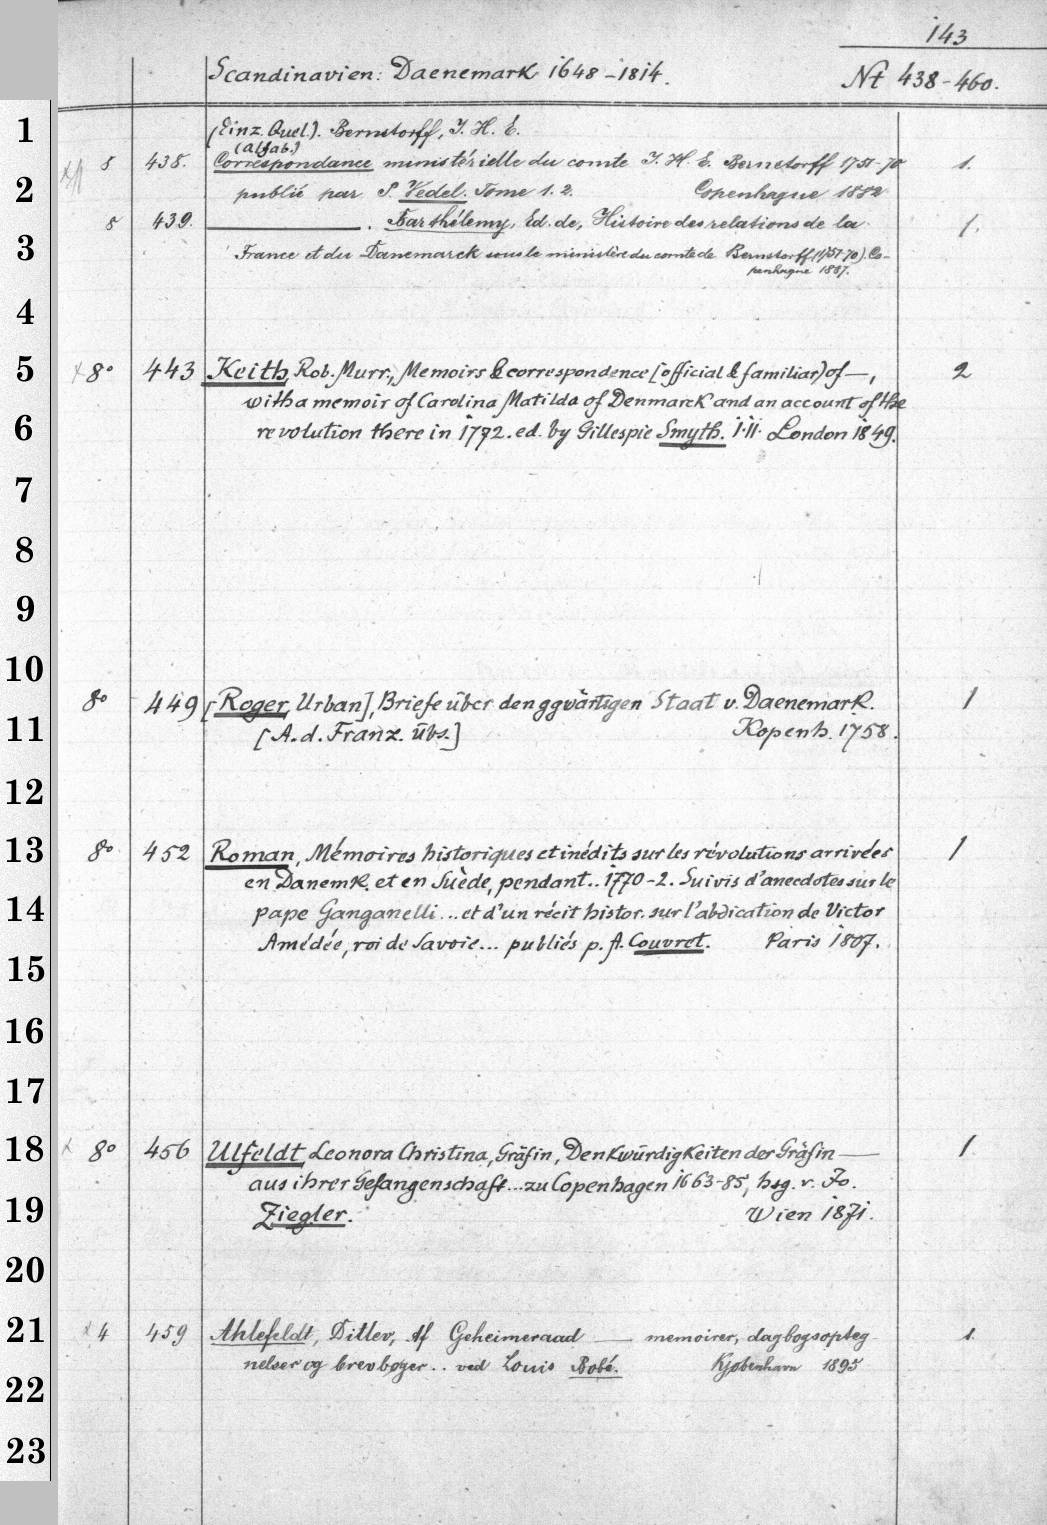 143
Scandinavien: Daenemark 1648-1814. Nt 438-460.
1
(Einz. Quel.). Bernstorff, J. H. E.
8 438. Correspondance ministérielle du comte J. H. E. Bernstorff 1751-70 1.
2
publié par P. Vedel. Tome 1. 2. Copenhague 1882
8 439. ———. Barthélemy, Ed. de, Histoire des relations de la 1.
3
France et du Danemarck sous le ministère du comte de Bernstorff (1751-70). Co-
penhague 1887.
4
5 x 8° 443 Keith, Rob. Murr., Memoirs & correspondence (official & familiar) of —, 2
with a memoir of Carolina Matilda of Denmark and an account of the
6 revolution there in 1772. ed. by Gillespie Smyth. I·II. London 1849.
7
8
9
10
8° 449 [Roger, Urban], Briefe über den ggwärtigen Staat v. Daenemark. 1
11 [A. d. Franz. übs.] Kopenh. 1758.
12
13 8° 452 Roman, Mémoires historiques et inédits sur les révolutions arrivées 1
en Danemk. et en Suède, pendant.. 1770-2. Suivis d'anecdotes sur le
14 pape Ganganelli ... et d'un récit histor. sur l'abdication de Victor
Amédée, roi de Savoie... publiés p. A. Couvret. Paris 1807.
15
16
17
18 x 8° 456 Ulfeldt, Leonora Christina, Gräfin, Denkwürdigkeiten der Gräfin — 1
aus ihrer Gefangenschaft... zu Copenhagen 1663-85, hsg. v. Jo.
19 Ziegler. Wien 1871.
20
21 x 4 459 Ahlefeldt, Ditlev, Af Geheimeraad — memoirer, dagbogsopteg 1.
nelser og brevbøger .. ved Louis Bobé. Kjøbenhavn 1895
22
23